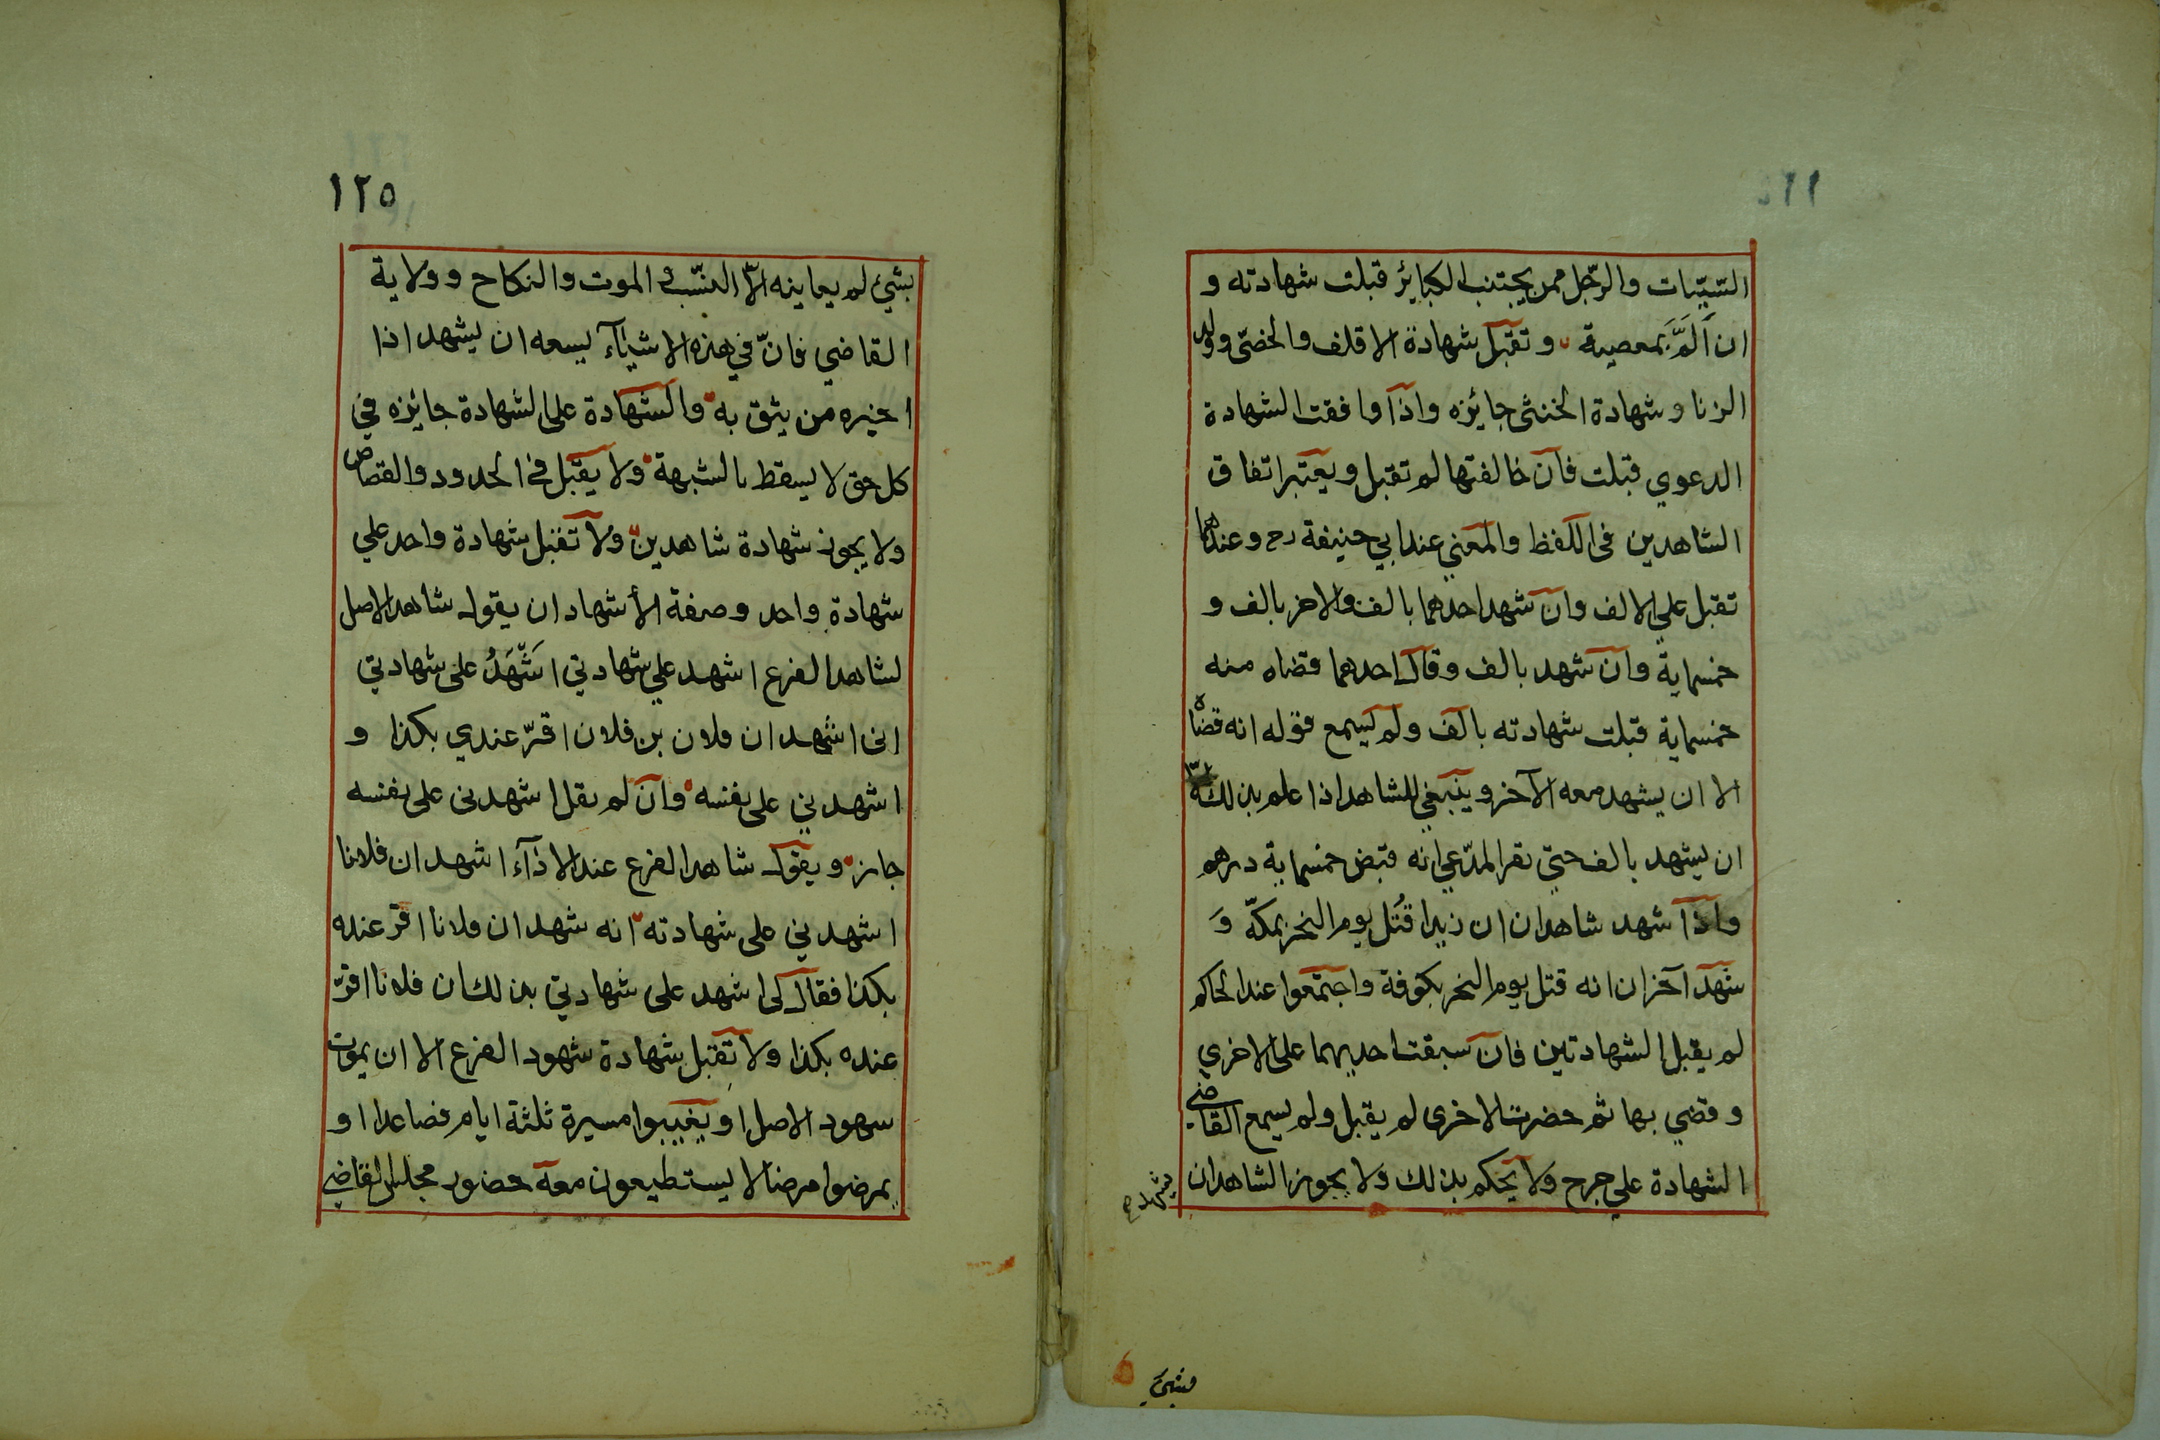 السّيّيات والرّجل ممن يجتنب الكبائر قبلت شهادته و
ان اَلَمَّ بمعصية و تقبل شهادة الاقلف والخصّى وولد
الزنا وشهادة الخنثى جائزه واذا وافقت الشهادة
الدعوي قبلت فان خالفتها لم تقبل ويعتبر اتفاق
الشاهدين فى اللفظ والمعني عند ابي حنيفة رح وعندهما
تقبل علي الالف وان شهد احدهما بالف والاخر بالف و
خمسماية وان شهد بالف وقال احدهما قضاه منه
خمسماية قبلت شهادته بالف ولم يسمع قوله انه قضاه
الا ان يشهد معه الآخر وينبغي للشاهد اذا علم بذلك الا
ان يشهد بالف حتي يقر المدّعي انه قبض خمسماية درهم
واذا شهد شاهدان ان زيدا قُتل يوم النحر بمكّة وَ
شهد آخران انه قتل يوم النحر بكوفة واجتمعوا عند الحاكم
لم يقبل الشهادتين فان سبقت احديهما على الاخري
وقضي بها ثم حضرت الاخرى لم يقبل ولم يسمع القاضي
الشهادة علي جرح ولا يحكم بذلك ولا يجوز الشاهدان
يشهد
بشئ
١٢٥
بشئ لم يعاينه الّا النسّب و الموت والنكاح و ولاية
القاضي فانّ في هذه الاشيٰآء يسعه ان يشهد اذا
اخبره من يثق به والشهادة على الشهادة جائزه في
كل حق لا يسقط بالشبهة ولا يقبل في الحدود والقصاص
ولا يجوز شهادة شاهدين ولا تقبل شهادة واحد علي
شهادة واحد وصفة الأشهاد ان يقول شاهد الاصل
لشاهد الفرع اشهد علي شهادتي اَشّهَدُ على شهادتي
انى اشهد ان فلان بن فلان اقرّ عندي بكذا و
اشهدني على نفسه وان لم يقل اشهدنى على نفسه
جاز ويقول شاهد الفرع عند الاذآء اشهد ان فلانا
اشهدني على شهادته انه شهد ان فلانا اقرّ عنده
بكذا فقال لى اشهد على شهادتي بذلك ان فلانا اقرّ
عنده بكذا ولا تقبل شهادة شهود الفرع الا ان يموت
سهود الاصل او يغيبوا مسيرة ثلثة ايام فصاعدا او
يمرضوا مرضا لا يستطيعون معه حضور مجلس القاضي